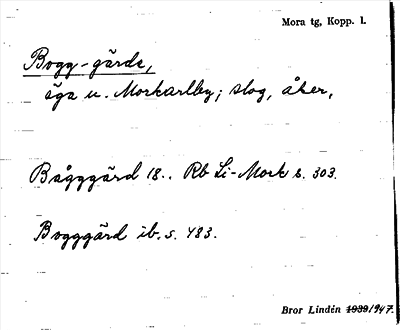 Mora tg, Kopp. l.
Bogg-gärde,
äga u. Morkarlby; slog, åker,
Bågggärd 18.. Rb Li-Mork s. 303.
Bogggärd ib. s. 483.
Bror Lindén 1939/947.